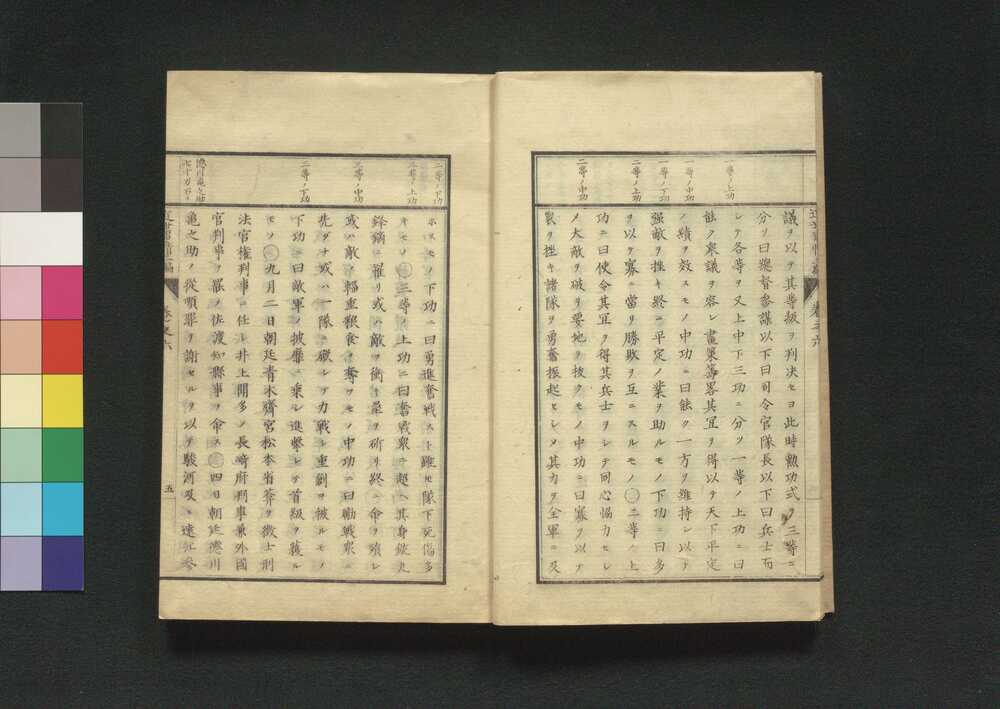 一等ノ上功
一等ノ中功
一等ノ下功
二等ノ上功
二等ノ中功
議ヲ以テ其等級ヲ判决セヨ此時勲功式ヲ三等ニ
分リ曰總督參謀以下曰司令官隊長以下曰兵士而
シテ各等ヲ又上中下三功ニ分ツ一等ノ上功ニ曰
能ク衆議ヲ容レ畫策籌畧其宜ヲ得以テ天下平定
ノ績ヲ效スモノ中功ニ曰能ク一方ヲ維持シ以テ
强敵ヲ挫キ終ニ平定ノ業ヲ助ルモノ下功ニ曰多
ヲ以テ寡ニ當リ勝敗ヲ互ニスルモノ○二等ノ上
功ニ曰使令其宜ヲ得其兵士ヲシテ同心協力セシ
メ大敵ヲ破リ要地ヲ拔クモノ中功ニ曰寡ヲ以テ
衆ヲ挫キ諸隊ヲ勇奮振起セシメ其力ヲ全軍ニ及
二等ノ下功
三等ノ上功
三等ノ中功
三等ノ下功
德川龜之助
七十万石
ホスモノ下功ニ曰勇進奮戰スト雖モ隊下死傷多
キモノ○三等ノ上功ニ曰奮戰衆ニ超ヘ其身銃丸
鋒鏑ニ罹リ或ハ敵ヲ衝キ壘ヲ斫リ終ニ命ヲ殞シ
或ハ敵ノ輜重粮食ヲ奪フモノ中功ニ曰勵戰衆ニ
先ダチ或ハ一隊ニ礙シテ力戰シ重創ヲ被ルモノ
下功ニ曰敵軍ノ披靡ニ乘シ進擊シテ首級ヲ獲ル
モノ○九月二日朝廷青木齊宮松本省葬ヲ徵士刑
法官權判事ニ任シ井上聞多ノ長﨑府判事兼外國
官判事ヲ罷メ佐渡縣知事ヲ命ス○四日朝廷德川
龜之助ノ從順罪ヲ謝セルヲ以テ駿河及ヒ遠江參
五